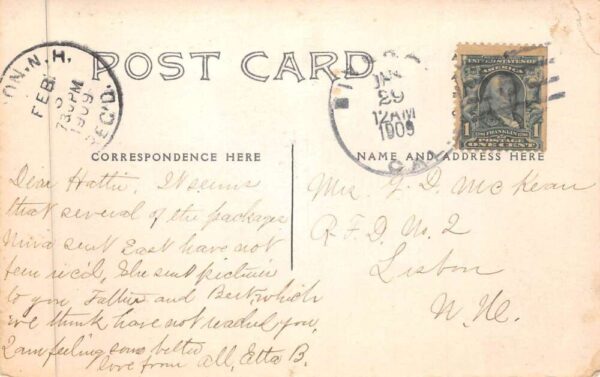 POST CARD
ON. N.H.
FEB
3
730PM
1909
REC'D.
JAN
29
12AM
1909
CAL.
UNITED STATES OF
AMERICA
FRANKLIN
1 POSTAGE 1
ONE CENT
CORRESPONDENCE HERE
NAME AND ADDRESS HERE
Dear Hattie, It seems
that several of the packages
Mina sent East have not
been rec'd, She sent picture
to you, Father and Bert, which
we think have not reached you,
I am feeling some better
love from all, Etta B.
Mrs. J. D. McKean
R. F. D. No. 2
Lisbon
N. H.